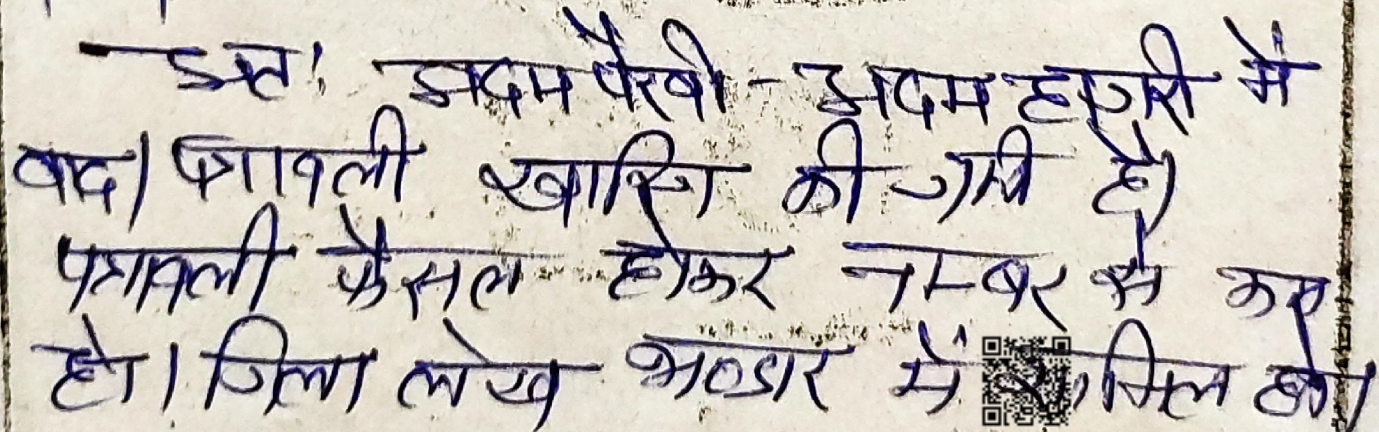 अतः अदम पैरवी - अदम हाजरी में
वाद/पत्रावली खारिज की जाती है।
पत्रावली फैसल होकर नम्बर से कम
हो। जिला लेख भण्डार में शामिल हो।